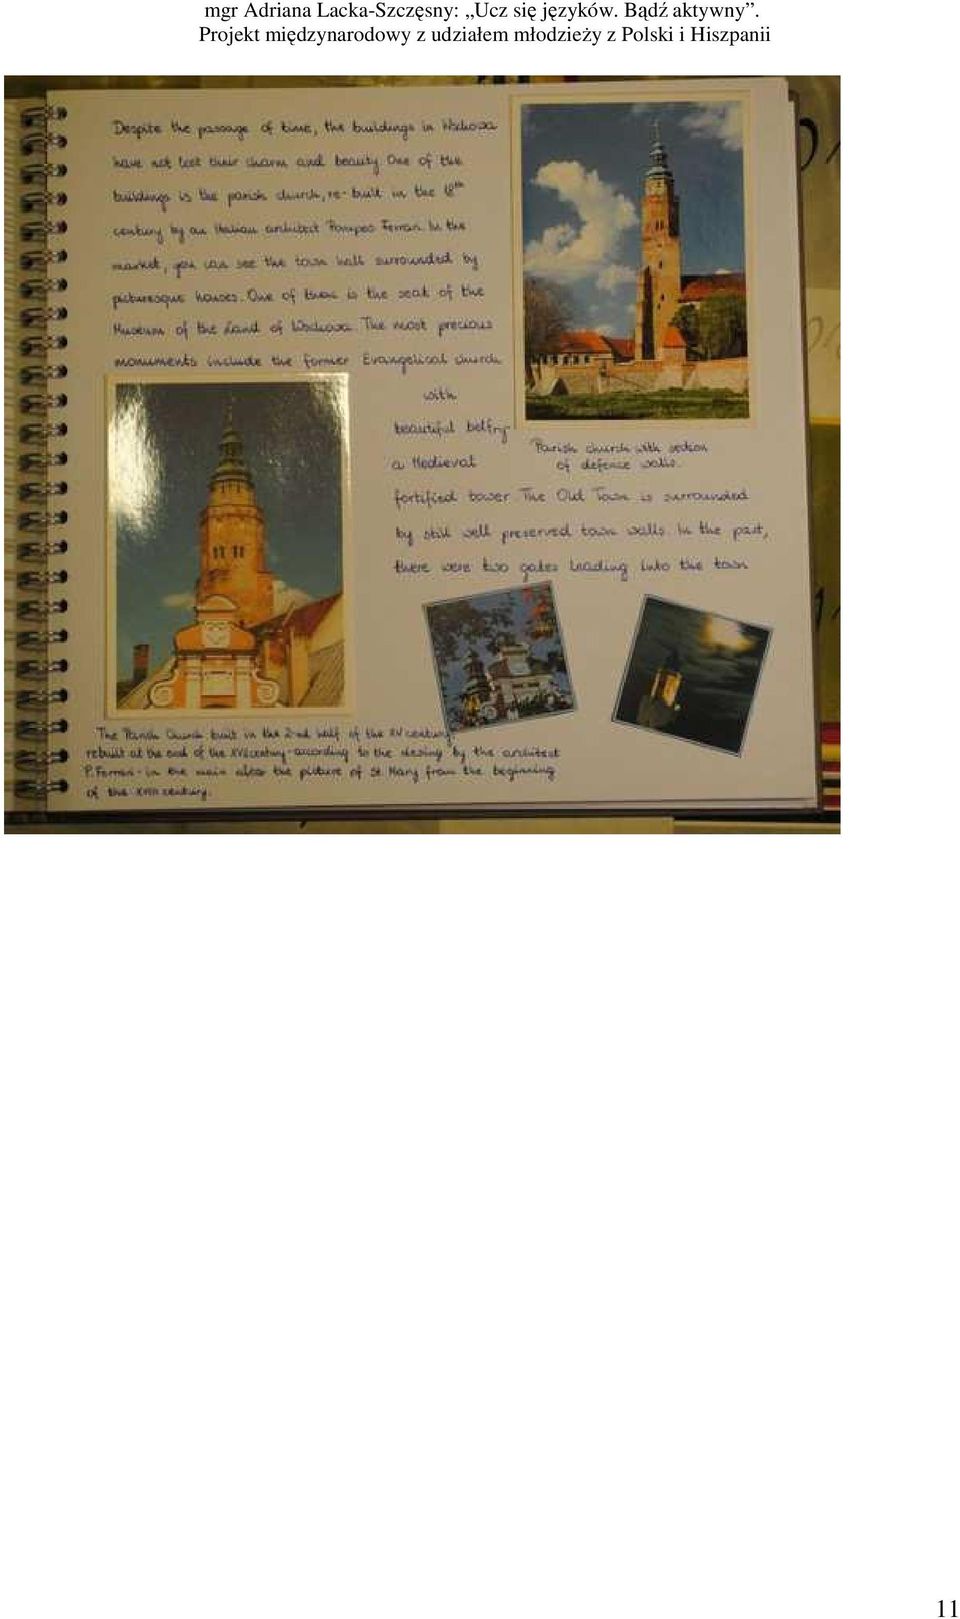 mgr Adriana Lacka-Szczęsny: „Ucz się języków. Bądź aktywny”.
Projekt międzynarodowy z udziałem młodzieży z Polski i Hiszpanii
Despite the passage of time, the buildings in Wschowa
have not lost their charm and beauty. One of the
buildings is the parish church, re-built in the 18th
century by an Italian architect Pompeo Ferrari. In the
market, you can see the town hall surrounded by
picturesque houses. One of them is the seat of the
Museum of the Land of Wschowa. The most precious
monuments include the former Evangelical church
with
beautiful belfry-
a Medieval
fortified tower. The Old Town is surrounded
by still well preserved town walls. In the past,
there were two gates leading into the town
Parish church with section
of defence walls.
The Parish Church built in the 2-nd half of the XV century,
rebuilt at the end of the century - according to the desing by the architect
P. Ferrari - in the main altar the picture of St. Mary from the beginning
of the XVIII century.
11